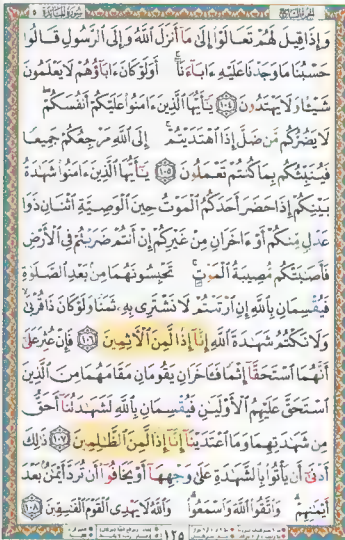 الجزء السابع سورة المائدة ٥
وَإِذَا قِيلَ لَهُمْ تَعَالَوْا۟ إِلَىٰ مَآ أَنزَلَ ٱللَّهُ وَإِلَى ٱلرَّسُولِ قَالُوا۟
حَسْبُنَا مَا وَجَدْنَا عَلَيْهِ ءَابَآءَنَآ أَوَلَوْ كَانَ ءَابَآؤُهُمْ لَا يَعْلَمُونَ
شَيْـًٔا وَلَا يَهْتَدُونَ ١٠٤ يَـٰٓأَيُّهَا ٱلَّذِينَ ءَامَنُوا۟ عَلَيْكُمْ أَنفُسَكُمْ
لَا يَضُرُّكُم مَّن ضَلَّ إِذَا ٱهْتَدَيْتُمْ إِلَى ٱللَّهِ مَرْجِعُكُمْ جَمِيعًا
فَيُنَبِّئُكُم بِمَا كُنتُمْ تَعْمَلُونَ ١٠٥ يَـٰٓأَيُّهَا ٱلَّذِينَ ءَامَنُوا۟ شَهَـٰدَةُ
بَيْنِكُمْ إِذَا حَضَرَ أَحَدَكُمُ ٱلْمَوْتُ حِينَ ٱلْوَصِيَّةِ ٱثْنَانِ ذَوَا
عَدْلٍ مِّنكُمْ أَوْ ءَاخَرَانِ مِنْ غَيْرِكُمْ إِنْ أَنتُمْ ضَرَبْتُمْ فِى ٱلْأَرْضِ
فَأَصَـٰبَتْكُم مُّصِيبَةُ ٱلْمَوْتِ تَحْبِسُونَهُمَا مِنۢ بَعْدِ ٱلصَّلَوٰةِ
فَيُقْسِمَانِ بِٱللَّهِ إِنِ ٱرْتَبْتُمْ لَا نَشْتَرِى بِهِۦ ثَمَنًا وَلَوْ كَانَ ذَا قُرْبَىٰ
وَلَا نَكْتُمُ شَهَـٰدَةَ ٱللَّهِ إِنَّآ إِذًا لَّمِنَ ٱلْـَٔاثِمِينَ ١٠٦ فَإِنْ عُثِرَ عَلَىٰٓ
أَنَّهُمَا ٱسْتَحَقَّآ إِثْمًا فَـَٔاخَرَانِ يَقُومَانِ مَقَامَهُمَا مِنَ ٱلَّذِينَ
ٱسْتَحَقَّ عَلَيْهِمُ ٱلْأَوْلَيَـٰنِ فَيُقْسِمَانِ بِٱللَّهِ لَشَهَـٰدَتُنَآ أَحَقُّ
مِن شَهَـٰدَتِهِمَا وَمَا ٱعْتَدَيْنَآ إِنَّآ إِذًا لَّمِنَ ٱلظَّـٰلِمِينَ ١٠٧ ذَٰلِكَ
أَدْنَىٰٓ أَن يَأْتُوا۟ بِٱلشَّهَـٰدَةِ عَلَىٰ وَجْهِهَآ أَوْ يَخَافُوٓا۟ أَن تُرَدَّ أَيْمَـٰنٌۢ بَعْدَ
أَيْمَـٰنِهِمْ وَٱتَّقُوا۟ ٱللَّهَ وَٱسْمَعُوا۟ وَٱللَّهُ لَا يَهْدِى ٱلْقَوْمَ ٱلْفَـٰسِقِينَ ١٠٨
١٢٥